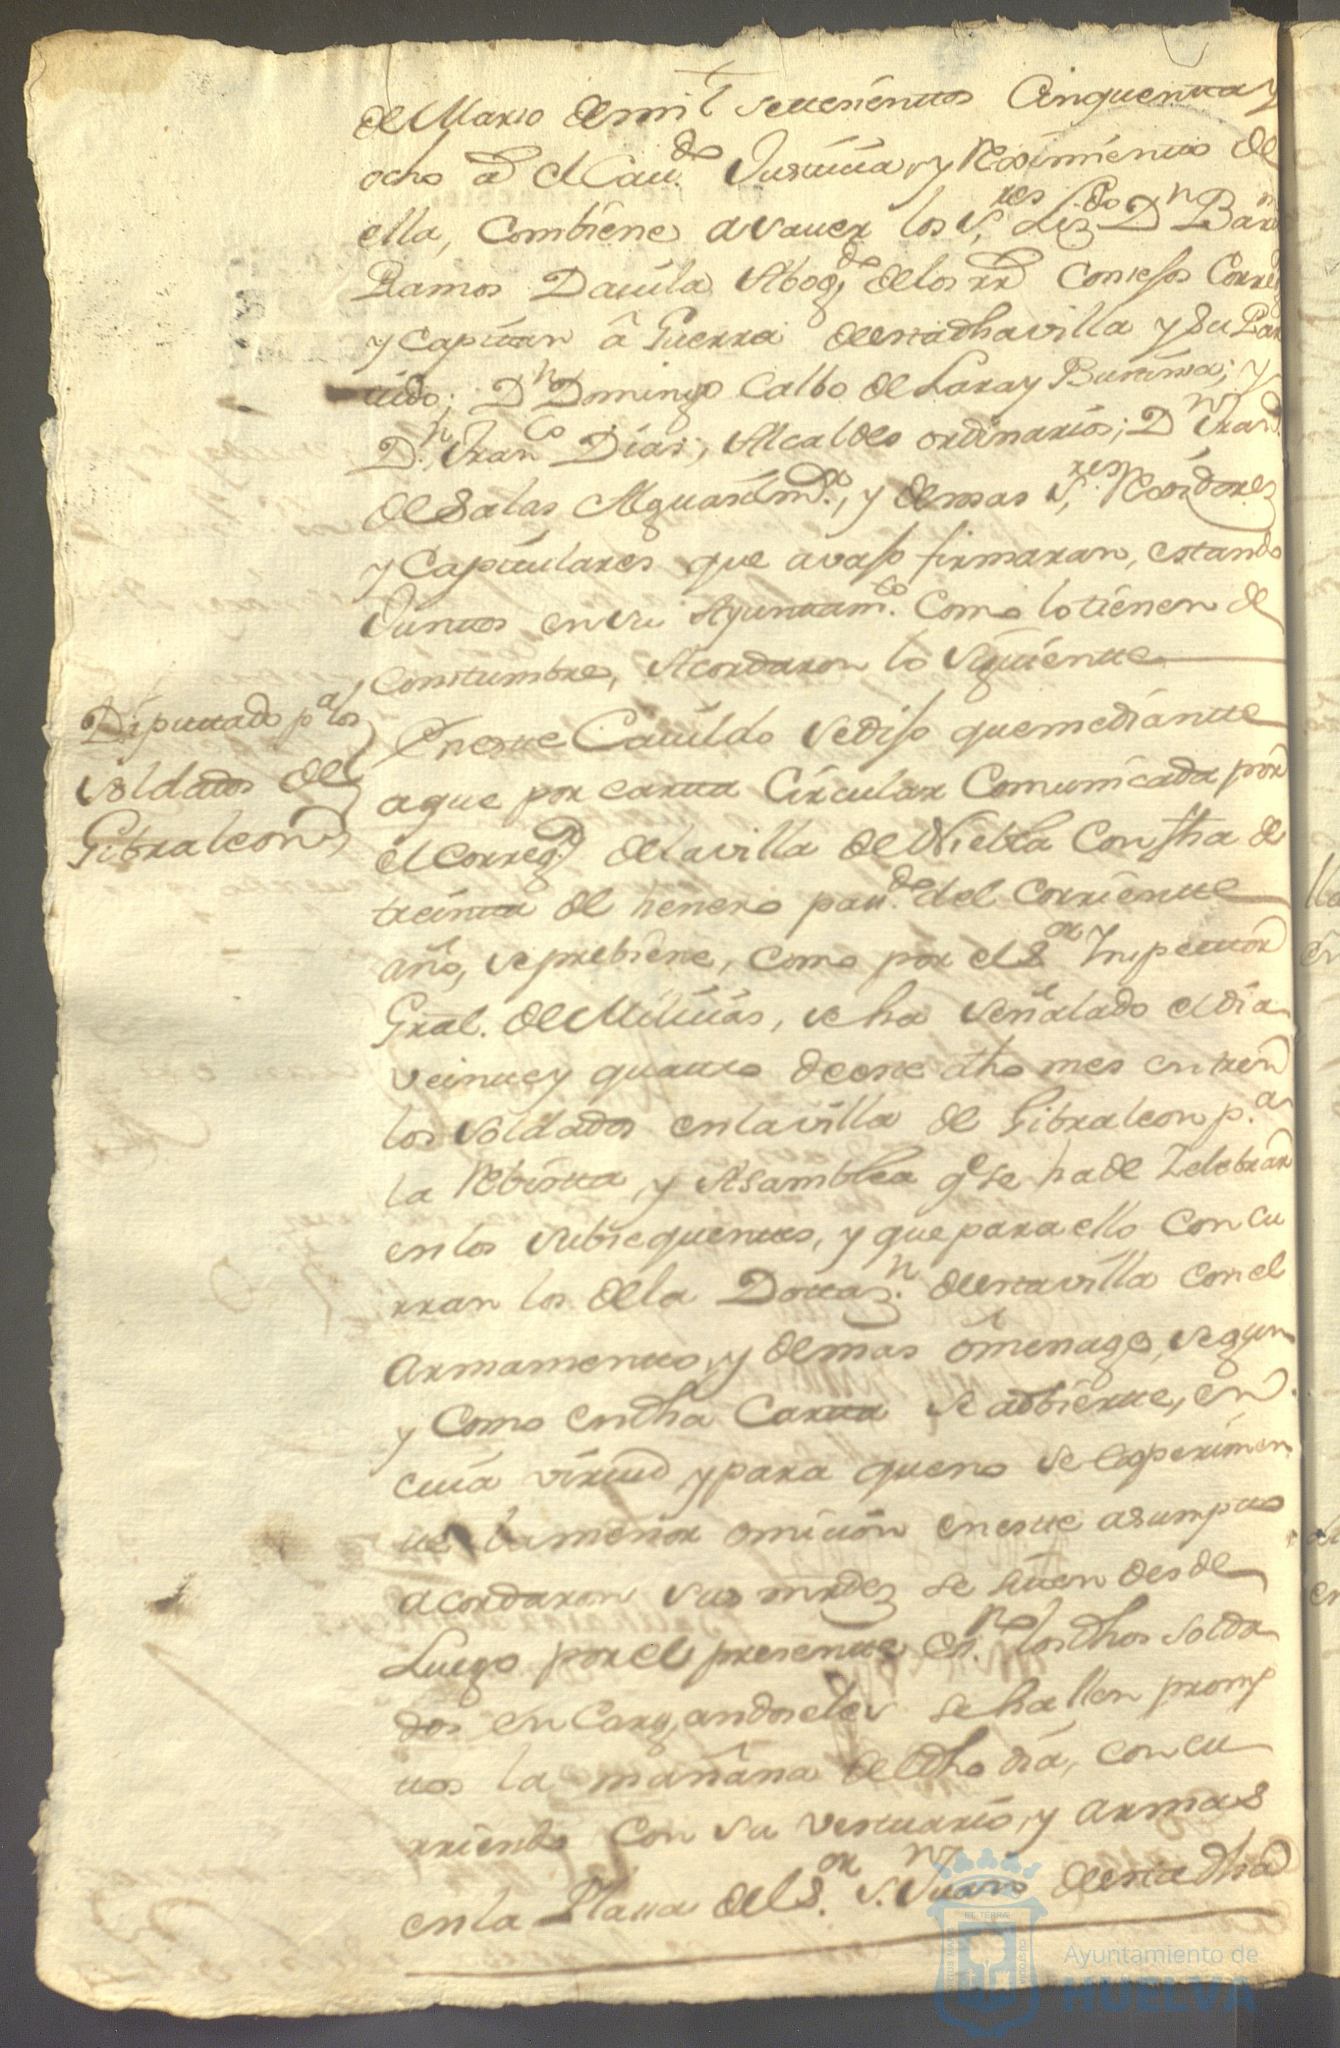 de Marzo de mil settesientos Cinquenta y
ocho as. el Cav.do Justicia, y Reximiento de
ella, combiene a saver los S.res Liz.do D.n Bar.me
Ramos Davila Abog.do de los rr.s Consejos Corre.r
y Capitan â Guerra de esta dha villa y su Par
tido; D.n Domingo Calbo de Lara y Buitima; y
D.n Fran.co Dias, Alcaldes ordinarios; D.n Fran.co
de Salas Alguasil m.or, y demas S.res Rexidores
y Capitulares que avajo firmaran, estando
Juntos en su Ayuntam.to Como lo tienen de
constumbre, Acordaron lo siguiente
Diputtado p.a los
soldados de
Gibraleon
En este Cavildo se dijo que mediante
a que por cartta Circular Comunicada por
el Correg.or de la villa de Niebla Con fha de
treintta de henero pasa.do del Corriente
año, se prebiene, como por el S.or Inspecttor
Gral. de Milicias, se ha señalado el dia
veinte y quatro de este dho mes entren
los soldados en la villa de Gibraleon p.a
la Rebistta, y Asamblea q.e se ha de Zelebrar
en los subsequentes, y que para ello concu
rran los de la Dottaz.n de esta villa con el
armamento, y demas omenage, segun
y Como en dha Cartta se adbierte, en
cuia virtud y para que no se esperimen
te la menor omicion en este asumpto
acordaron sus mrdez se siten desde
Luego por el presente es.no los dhos solda
dos en Cargandoseles se hallen promp
tos la mañana de dho dia, concu
rriendo con su vestuario, y armas
en la Plaza del S.or S.n Juan de esta dha
Ayuntamiento de
HUELVA